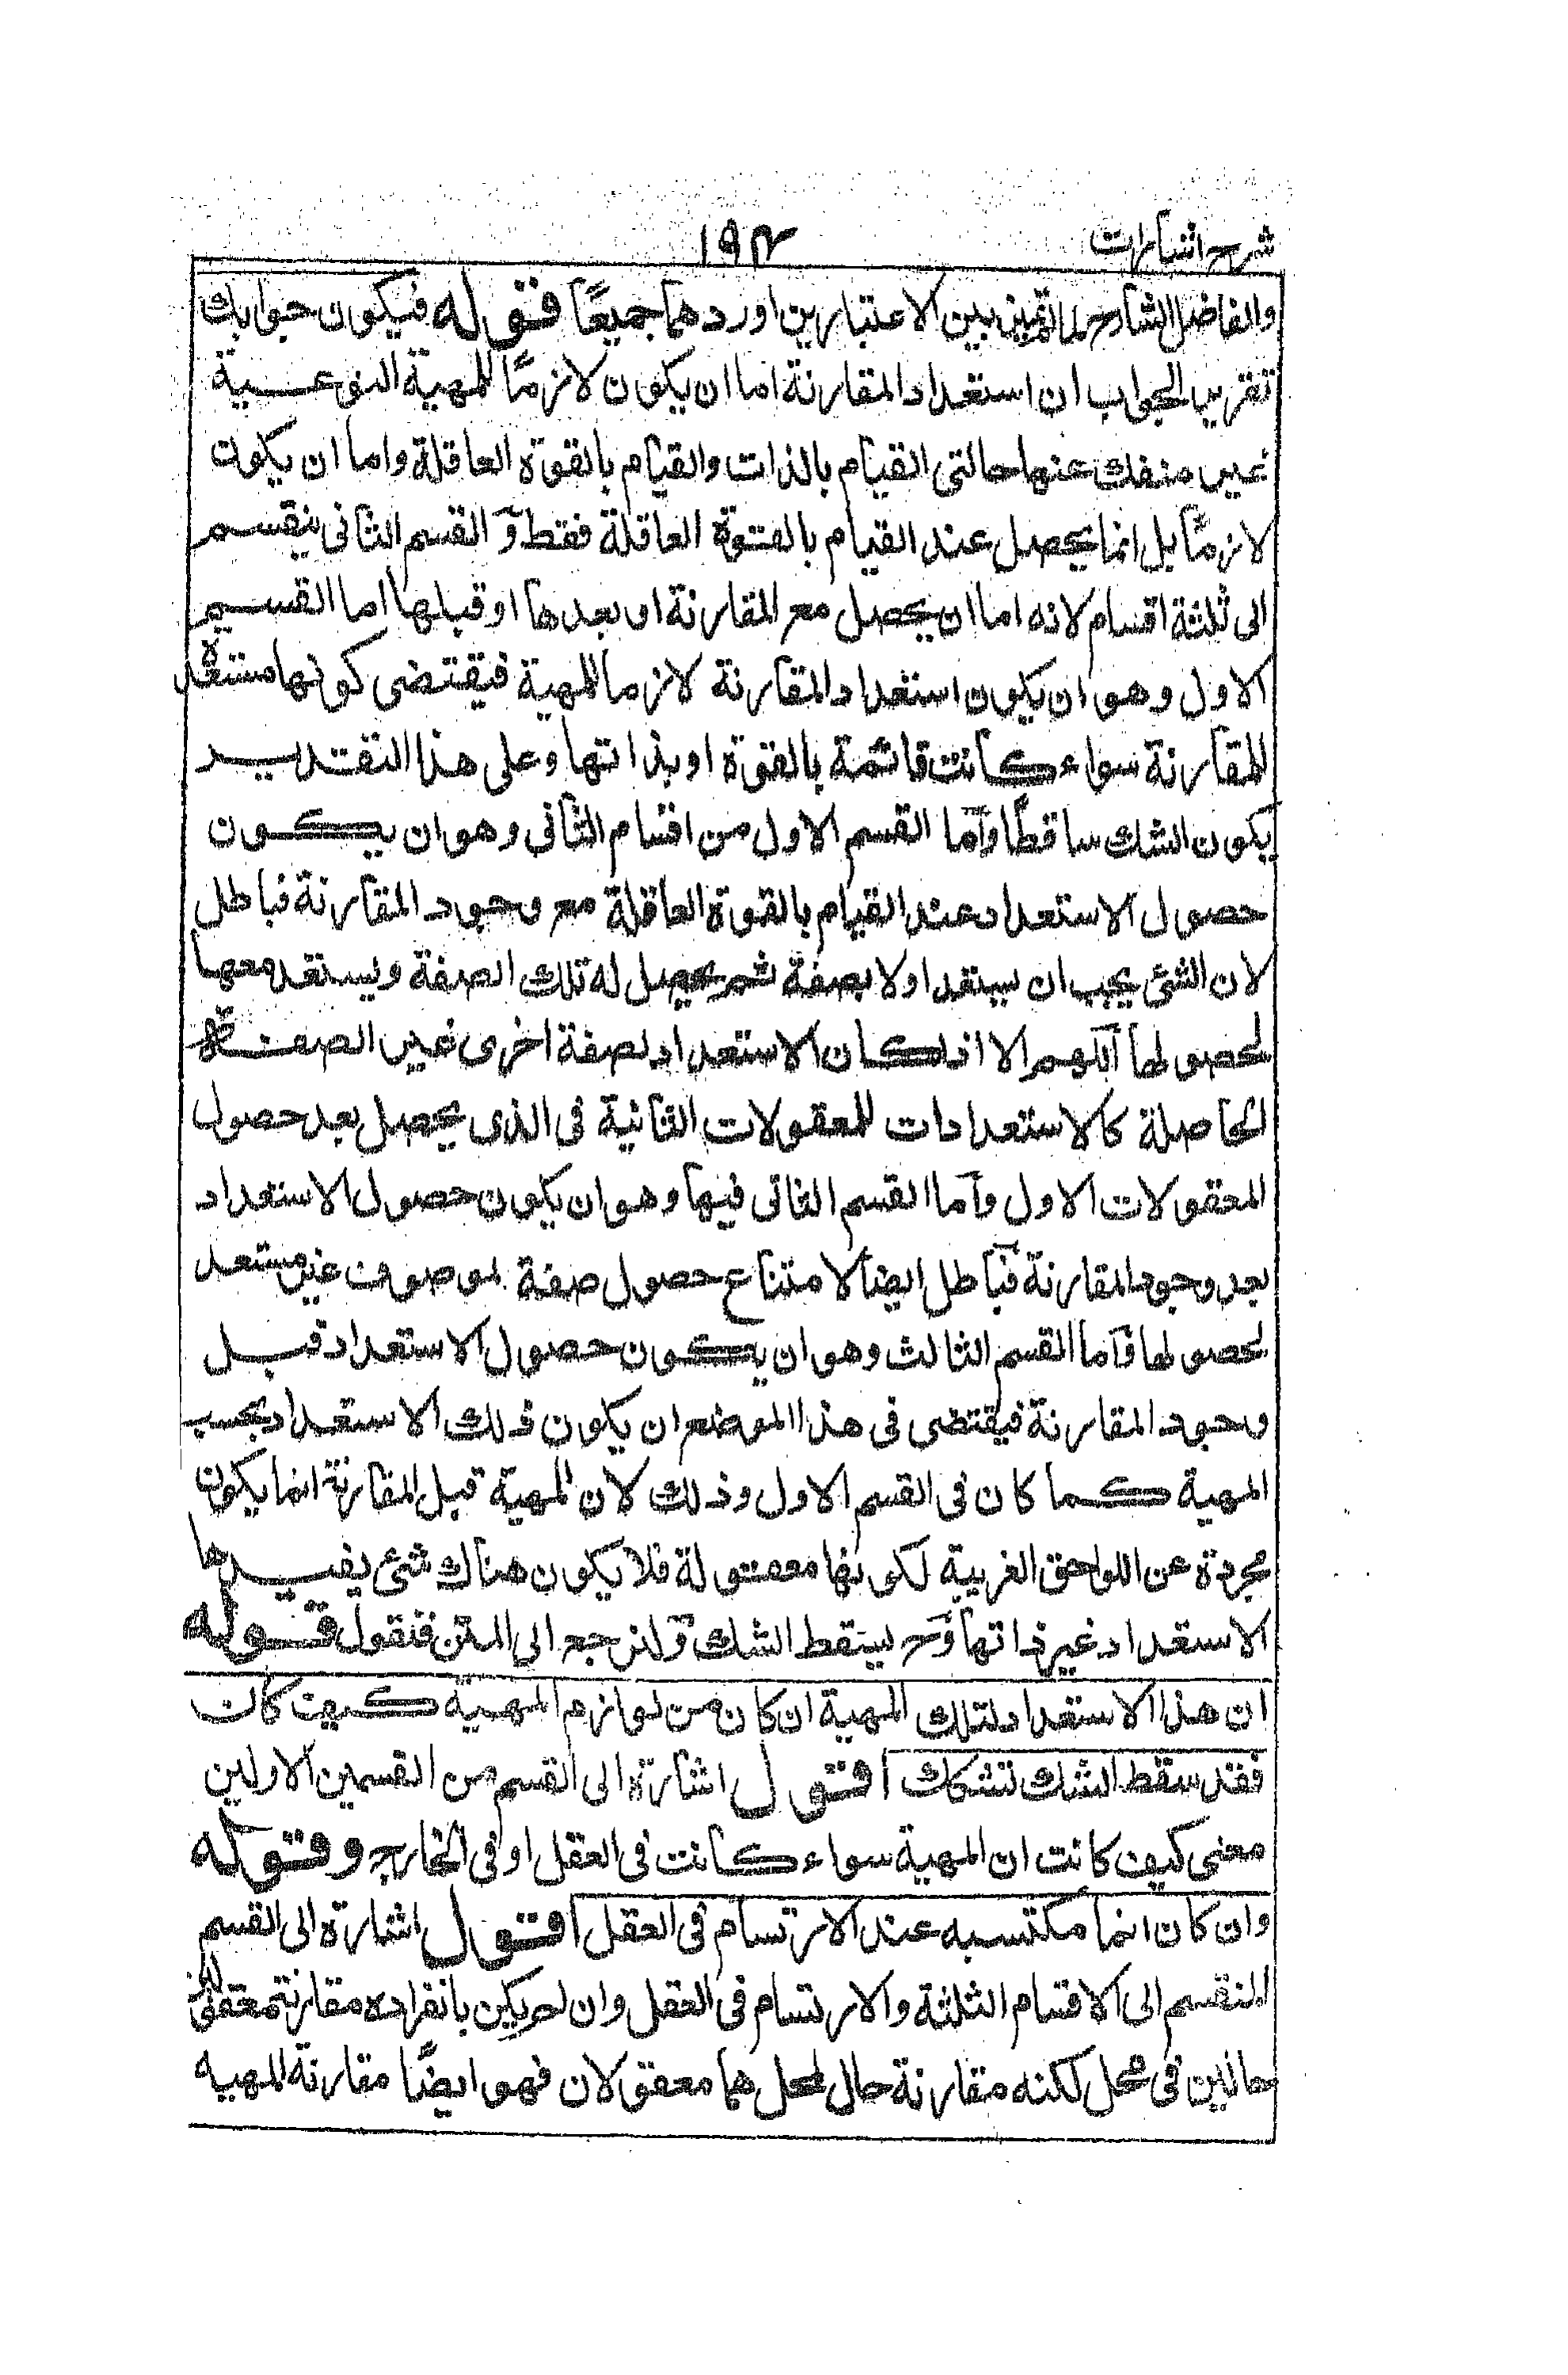 شرح اشارات
١٩٣
والفاضل الشارح لما لم يميز بين الاعتبارين اوردهما جميعًا قوله فيكون جوابك
تقرير الجواب ان استعداد المقارنة اما ان يكون لازمًا للمهية النوعية
غير منفك عنها حالتى القيام بالذات والقيام بالقوة العاقلة واما ان يكون
لازمًا بل انما يحصل عند القيام بالقوة العاقلة فقط و القسم الثانى ينقسم
الى ثلثة اقسام لانه اما ان يحصل مع المقارنة او بعدها او قبلها اما القسم
الاول وهو ان يكون استعداد المقارنة لازما للمهية فيقتضى كونها مستعدة
للمقارنة سواء كانت قائمة بالقوة او بذاتها وعلى هذا التقدير
يكون الشك ساقطًا وآما القسم الاول من اقسام الثانى وهو ان يكون
حصول الاستعداد عند القيام بالقوة العاقلة مع وجود المقارنة فباطل
لان الشئ يجب ان يستعد اولا بصفة ثم يحصل له تلك الصفة ويستعد معها
لحصولها آللهم الا اذا كان الاستعداد لصفة اخرى غير الصفة
الحاصلة كالاستعدادات للمعقولات الثانية فى الذى يحصل بعد حصول
المعقولات الاول وآما القسم الثانى فيها وهو ان يكون حصول الاستعداد
بعد وجود المقارنة فباطل ايضا لامتناع حصول صفة لموصوف غير مستعد
لحصولها وآما القسم الثالث وهو ان يكون حصول الاستعداد قبل
وجود المقارنة فيقتضى فى هذا الموضع ان يكون ذلك الاستعداد بحسب
المهية كما كان فى القسم الاول وذلك لان المهية قبل المقارنة انما يكون
مجردة عن اللواحق الغريبة لكونها معقولة فلا يكون هناك شئ يفيدها
الاستعداد غير ذاتها وح يسقط الشك ولنرجع الى المتن فنقول قوله
ان هذا الاستعداد لتلك المهية ان كان من لوازم المهية كيف كانت
فقد سقط الشك تشكك اقول اشارة الى القسم من القسمين الاولين
معنى كيف كانت ان المهية سواء كانت فى العقل او فى الخارج وقوله
وان كان انما مكتسبه عند الارتسام فى العقل اقول اشارة الى القسم
المنقسم الى الاقسام الثلثة والارتسام فى العقل وان لم يكن بانفراده مقارنة معقولين
حالين فى محل لكنه مقارنة حال لمحل هما معقولان فهو ايضًا مقارنة المهيه